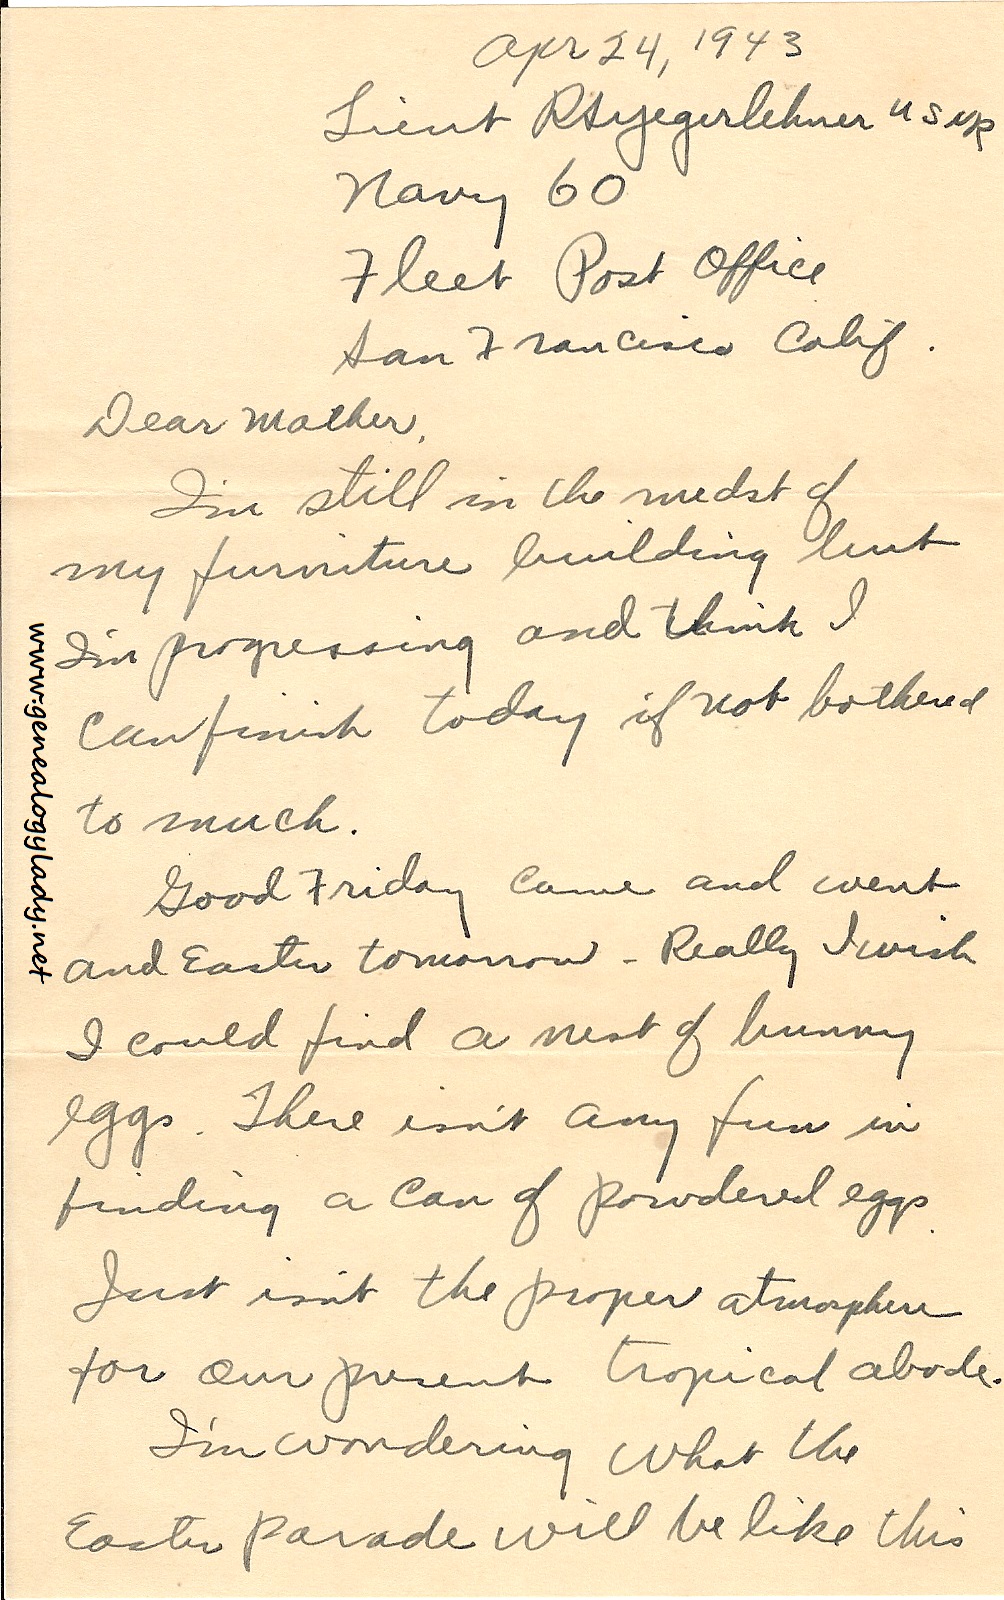 Apr 24, 1943
Lieut RSYegerlehner USNR
Navy 60
Fleet Post Office
San Francisco Calif.
Dear Mother,
I'm still in the medst of
my furniture building but
I'm progressing and think I
can finish today if not bothered
to much.
Good Friday came and went
and Easter tomorrow - Really I wish
I could find a nest of bunny
eggs. There isn't any fun in
finding a can of powdered eggs.
Just isn't the proper atmosphere
for our present tropical abode.
I'm wondering what the
Easter parade will be like this
www.genealogylady.net